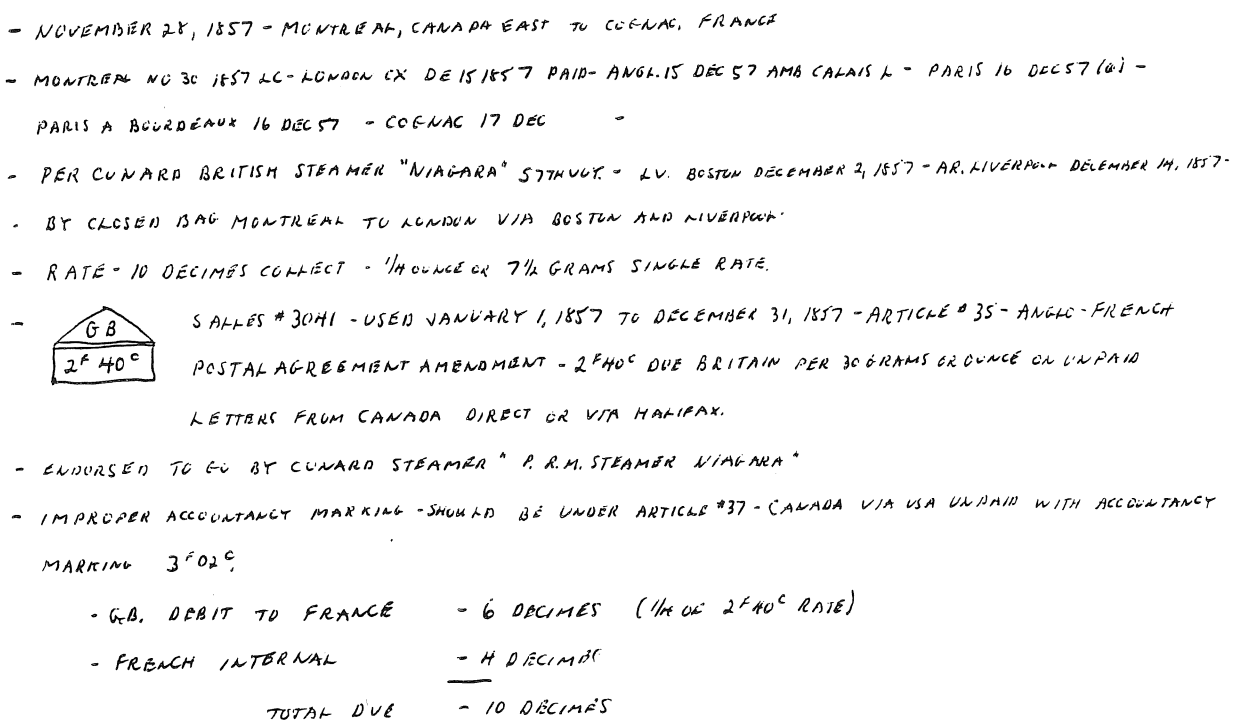 - NOVEMBER 28, 1857 - MONTREAL, CANADA EAST TO COGNAC, FRANCE
- MONTREAL NO 30 1857 LC - LONDON CX DE 15 1857 PAID - ANGL. 15 DEC 57 AMB CALAIS L - PARIS 16 DEC 57 (a) -
PARIS A BOURDEAUX 16 DEC 57 - COGNAC 17 DEC -
- PER CUNARD BRITISH STEAMER "NIAGARA" 57TH VOY. - LV. BOSTON DECEMBER 2, 1857 - AR. LIVERPOOL DECEMBER 14, 1857 -
- BY CLOSED BAG MONTREAL TO LONDON VIA BOSTON AND LIVERPOOL.
- RATE - 10 DECIMES COLLECT - 1/4 OUNCE OR 7 1/2 GRAMS SINGLE RATE.
- GB 2F 40C SALLES #3041 - USED JANUARY 1, 1857 TO DECEMBER 31, 1857 - ARTICLE #35 - ANGLO-FRENCH
POSTAL AGREEMENT AMENDMENT - 2F40C DUE BRITAIN PER 30 GRAMS OR OUNCE ON UNPAID
LETTERS FROM CANADA DIRECT OR VIA HALIFAX.
- ENDORSED TO GO BY CUNARD STEAMER "P.R.M. STEAMER NIAGARA"
- IMPROPER ACCOUNTANCY MARKING - SHOULD BE UNDER ARTICLE #37 - CANADA VIA USA UNPAID WITH ACCOUNTANCY
MARKING 3F02C.
- GB. DEBIT TO FRANCE - 6 DECIMES (1/4 OF 2F40C RATE)
- FRENCH INTERNAL - 4 DECIMES
TOTAL DUE - 10 DECIMES